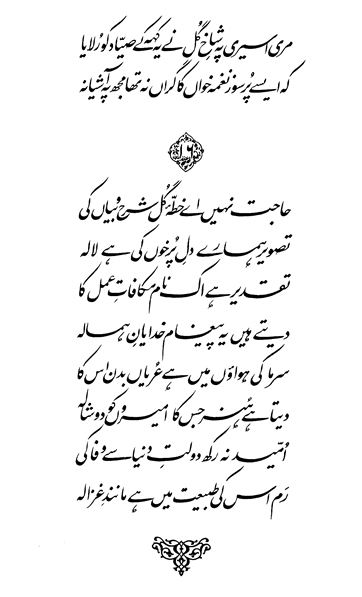 مری اسیری پہ شاخِ گل نے یہ کہہ کے صیّاد کو رُلایا
کہ ایسے پُرسوز نغمہ خواں کا گراں نہ تھا مجھ پہ آشیانہ
۱۶
حاجت نہیں اے خطۂ گُل شرح و بیاں کی
تصویر ہمارے دلِ پُرخوں کی ہے لالہ
تقدیر ہے اک نام مکافاتِ عمل کا
دیتے ہیں یہ پیغام خدایانِ ہمالہ
سرما کی ہواؤں میں ہے عُریاں بدن اس کا
دیتا ہے ہُنر جس کا امیروں کو دوشالہ
اُمّید نہ رکھ دولتِ دنیا سے وفا کی
رَم اس کی طبیعت میں ہے مانندِ غزالہ